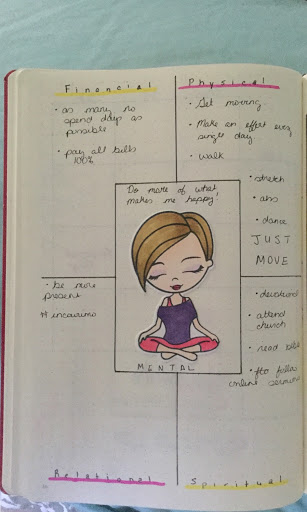 Financial
• as many no
spend days as
possible
• pay all bills
100%
Physical
• Get moving.
• Make an effort every
single day
• walk
• stretch
• abs
• dance
JUST
MOVE
Do more of what
makes me happy!
MENTAL
• be more
present
• devotional
• attend
church
• read bible
online
Relational
Spiritual